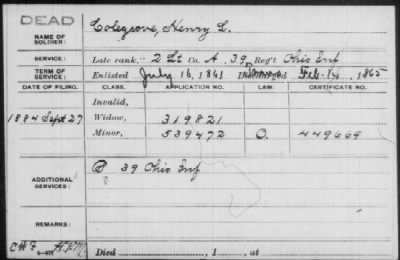 DEAD
NAME OF SOLDIER: Colegrove, Henry L.
SERVICE: Late rank, 2 Lt Co. A, 39 Reg't Ohio Inf
TERM OF SERVICE: Enlisted July 16, 1861 Feb. 14, 1865
DATE OF FILING. CLASS. APPLICATION NO. LAW. CERTIFICATE NO.
Invalid,
1884 Sept 27 Widow, 319821
Minor, 539472 O. 449669
ADDITIONAL SERVICES: B 39 Ohio Inf
REMARKS:
Died , 1 , at